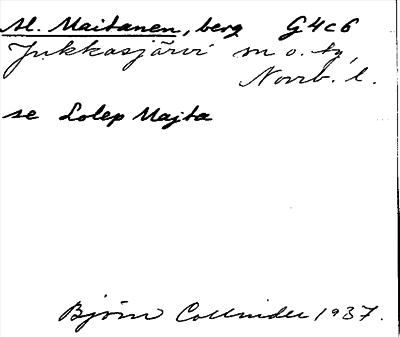 M. Maitanen, berg G4c6
Jukkasjärvi m o. ty,
Norrb. l.
se Lolep Majta
Björn Collinder 1937.